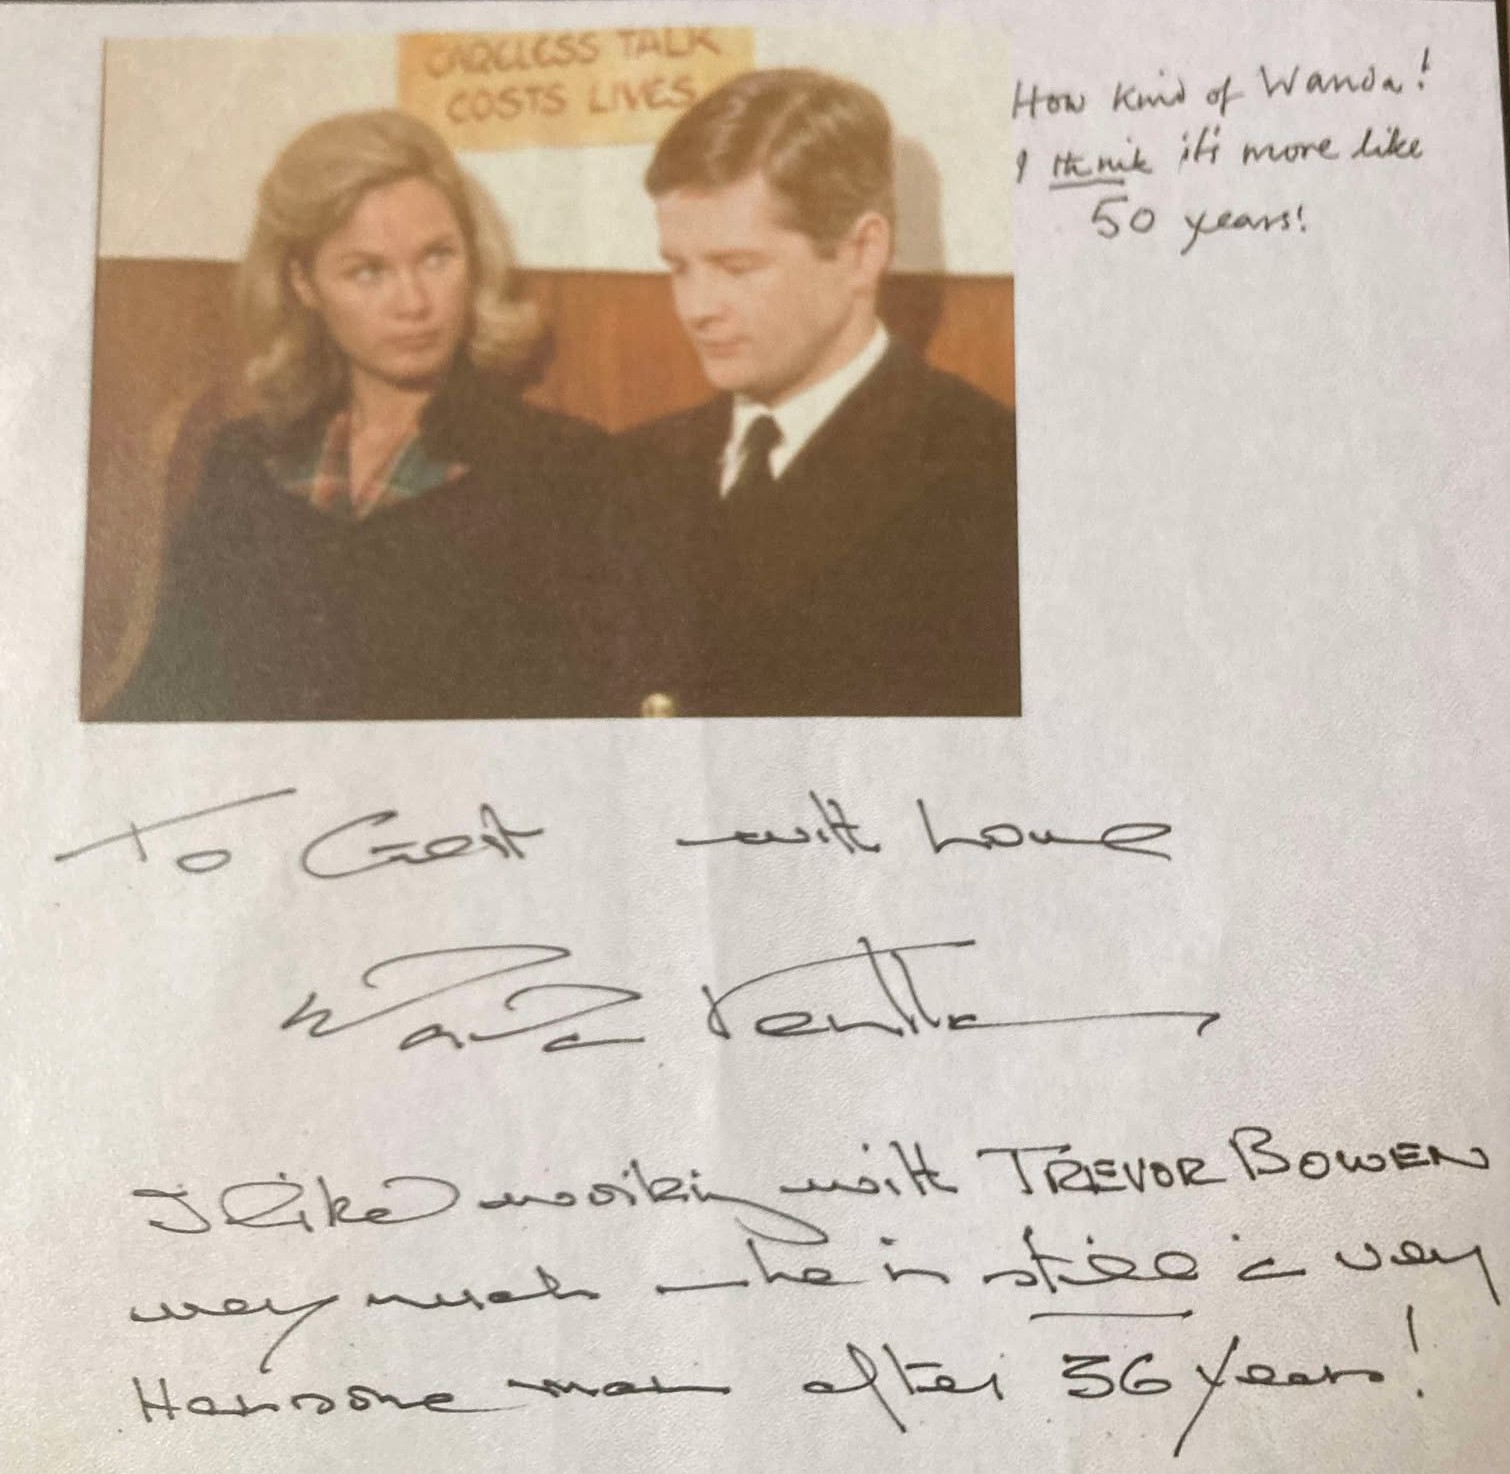 CARELESS TALK
COSTS LIVES
How kind of Wanda!
I think it's more like
50 years!
To Gert with Love
Wanda Ventham
I liked working with TREVOR BOWEN
very much – he is still a very
Handsome man after 36 years!